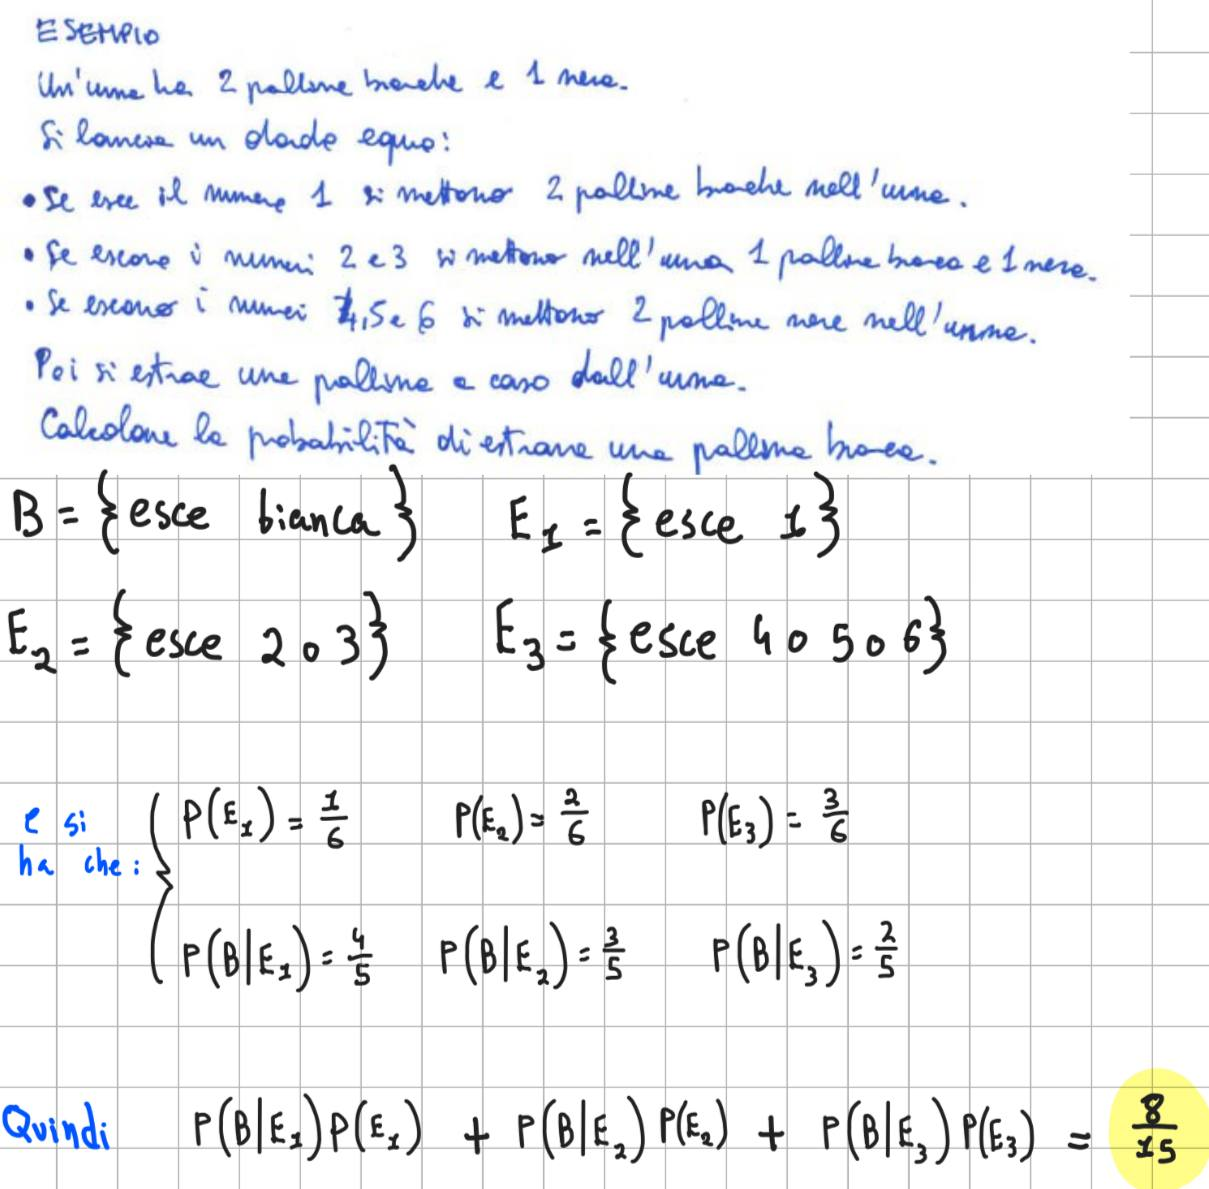 ESEMPIO
Un'urna ha 2 palline bianche e 1 nera.
Si lancia un dado equo:
• Se esce il numero 1 si mettono 2 palline bianche nell'urna.
• Se escono i numeri 2 e 3 si mettono nell'urna 1 pallina bianca e 1 nera.
• Se escono i numeri 4, 5 e 6 si mettono 2 palline nere nell'urna.
Poi si estrae una pallina a caso dall'urna.
Calcolare la probabilità di estrarre una pallina bianca.
B = {esce bianca} E₁ = {esce 1}
E₂ = {esce 2 o 3} E₃ = {esce 4 o 5 o 6}
e si ha che: P(E₁) = 1/6 P(E₂) = 2/6 P(E₃) = 3/6
P(B|E₁) = 4/5 P(B|E₂) = 3/5 P(B|E₃) = 2/5
Quindi P(B|E₁)P(E₁) + P(B|E₂)P(E₂) + P(B|E₃)P(E₃) = 8/15